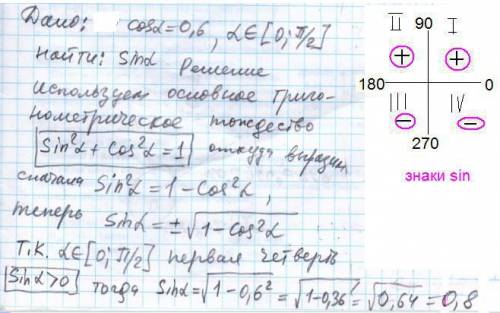 Дано: cosα=0,6, α∈[0; π/2]
Найти: sinα Решение
Используем основное триго-
нометрическое тождество
Sin²α + Cos²α = 1 откуда выразим
сначала Sin²α = 1 - Cos²α,
теперь Sinα = ±√1-Cos²α
Т.К. α∈[0; π/2] первая четверть
Sinα>0 тогда Sinα = √1-0,6² = √1-0,36 = √0,64 = 0,8
II 90 I
+ +
180 0
III IV
- -
270
знаки sin